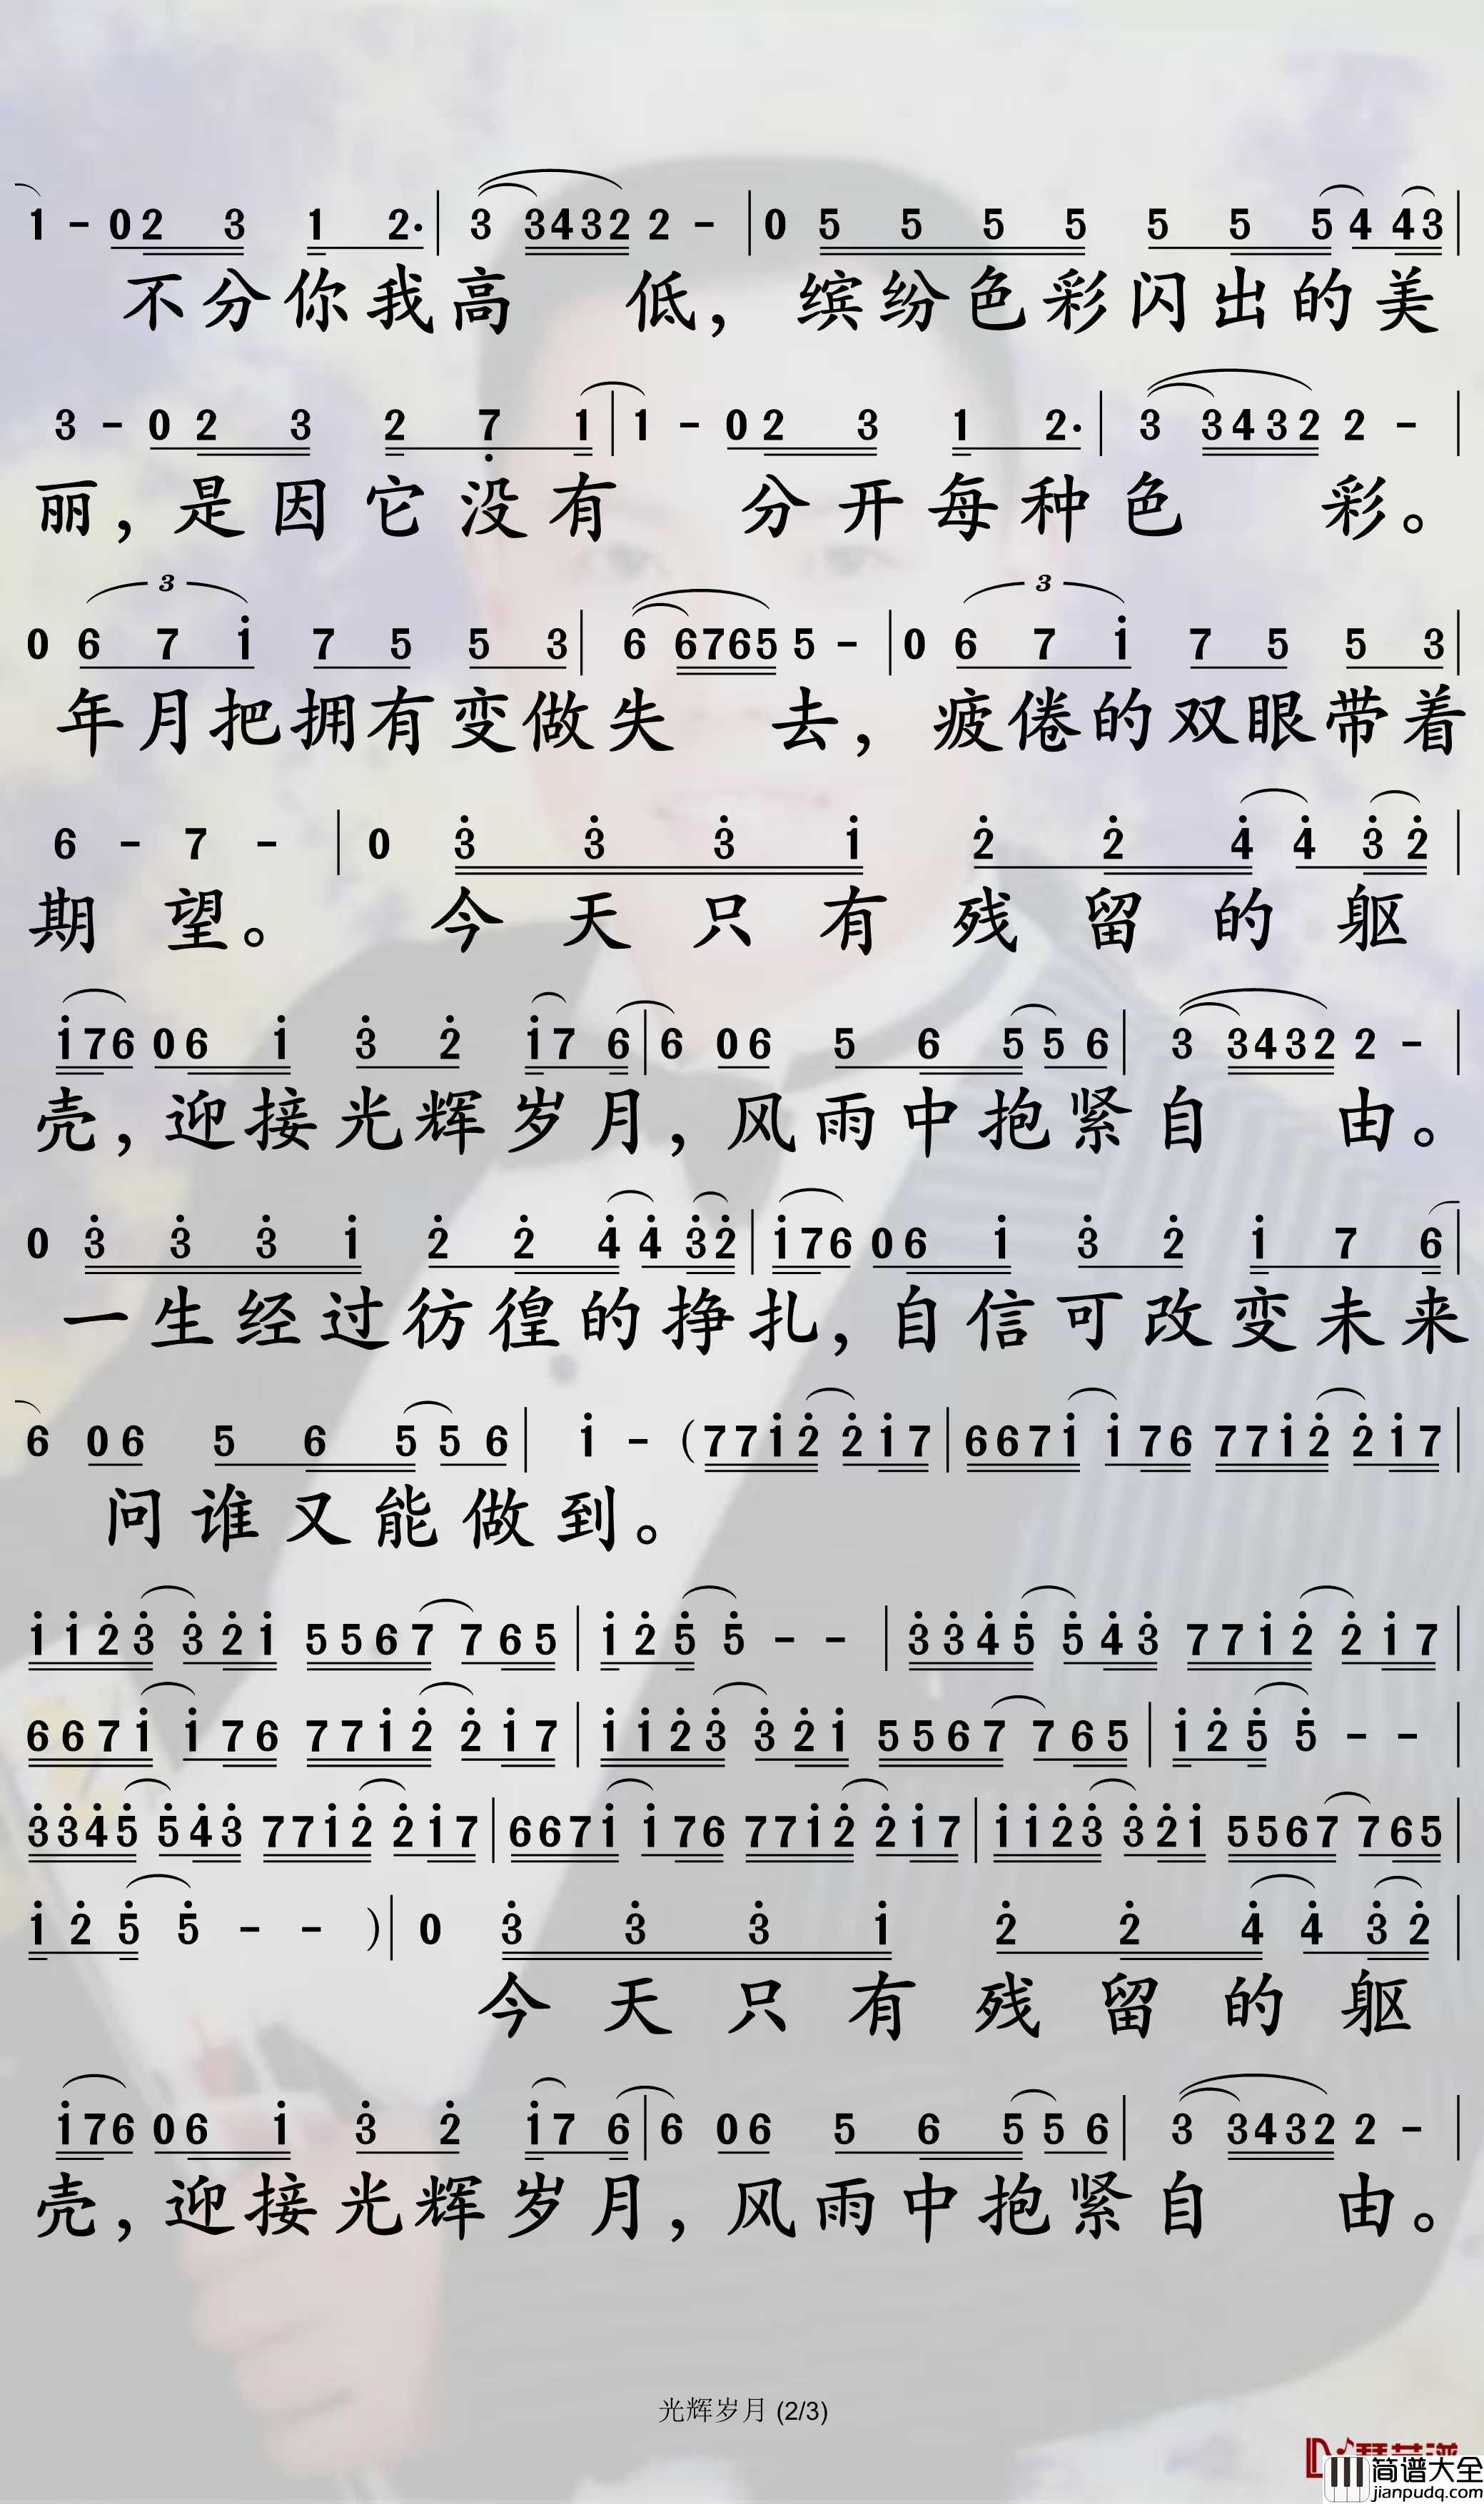 1 - 0 2 3 1 2· | 3 3 4 3 2 2 - | 0 5 5 5 5 5 5 5 4 4 3 |
不分你我高 低，缤纷色彩闪出的美
3 - 0 2 3 2 7̣ 1 | 1 - 0 2 3 1 2· | 3 3 4 3 2 2 - |
丽，是因它没有 分开每种色 彩。
3 3
0 6 7 1̇ 7 5 5 3 | 6 6 7 6 5 5 - | 0 6 7 1̇ 7 5 5 3 |
年月把拥有变做失 去，疲倦的双眼带着
6 - 7 - | 0 3̇ 3̇ 3̇ 1̇ 2̇ 2̇ 4̇ 4̇ 3̇ 2̇ |
期 望。 今天只有残留的躯
1̇ 7 6 0 6 1̇ 3̇ 2̇ 1̇ 7 6 | 6 0 6 5 6 5 5 6 | 3 3 4 3 2 2 - |
壳，迎接光辉岁月，风雨中抱紧自 由。
0 3̇ 3̇ 3̇ 1̇ 2̇ 2̇ 4̇ 4̇ 3̇ 2̇ | 1̇ 7 6 0 6 1̇ 3̇ 2̇ 1̇ 7 6 |
一生经过彷徨的挣扎，自信可改变未来
6 0 6 5 6 5 5 6 | 1̇ - (7 7 1̇ 2̇ 2̇ 1̇ 7 | 6 6 7 1̇ 1̇ 7 6 7 7 1̇ 2̇ 2̇ 1̇ 7 |
问谁又能做到。
1̇ 1̇ 2̇ 3̇ 3̇ 2̇ 1̇ 5 5 6 7 7 6 5 | 1̇ 2̇ 5̇ 5̇ - - | 3̇ 3̇ 4̇ 5̇ 5̇ 4̇ 3̇ 7 7 1̇ 2̇ 2̇ 1̇ 7 |
6 6 7 1̇ 1̇ 7 6 7 7 1̇ 2̇ 2̇ 1̇ 7 | 1̇ 1̇ 2̇ 3̇ 3̇ 2̇ 1̇ 5 5 6 7 7 6 5 | 1̇ 2̇ 5̇ 5̇ - - |
3̇ 3̇ 4̇ 5̇ 5̇ 4̇ 3̇ 7 7 1̇ 2̇ 2̇ 1̇ 7 | 6 6 7 1̇ 1̇ 7 6 7 7 1̇ 2̇ 2̇ 1̇ 7 | 1̇ 1̇ 2̇ 3̇ 3̇ 2̇ 1̇ 5 5 6 7 7 6 5 |
1̇ 2̇ 5̇ 5̇ - - ) | 0 3̇ 3̇ 3̇ 1̇ 2̇ 2̇ 4̇ 4̇ 3̇ 2̇ |
今天只有残留的躯
1̇ 7 6 0 6 1̇ 3̇ 2̇ 1̇ 7 6 | 6 0 6 5 6 5 5 6 | 3 3 4 3 2 2 - |
壳，迎接光辉岁月，风雨中抱紧自 由。
光辉岁月 (2/3)
简谱大全
jianpudq.com